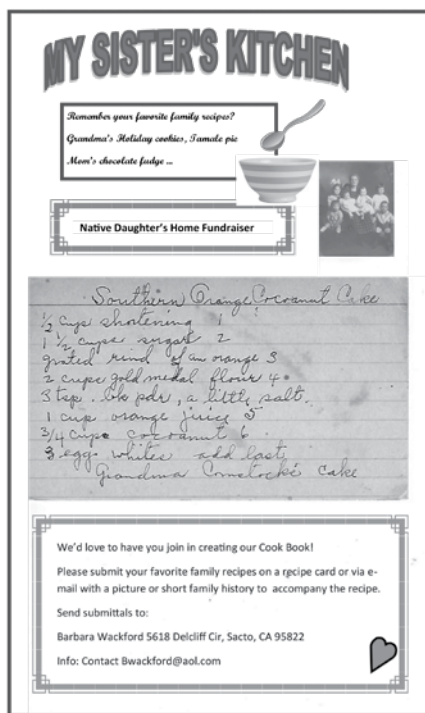 MY SISTER'S KITCHEN
Remember your favorite family recipes?
Grandma's Holiday cookies, Tamale pie
Mom's chocolate fudge ...
Native Daughter's Home Fundraiser
Southern Orange Cocoanut Cake
1/2 cup shortening 1
1 1/2 cups sugar 2
grated rind of an orange 3
2 cups gold medal flour 4
3 tsp. bk pdr, a little salt.
1 cup orange juice 5
3/4 cup cocoanut 6
3 egg whites add last
Grandma Comstocks cake
We'd love to have you join in creating our Cook Book!
Please submit your favorite family recipes on a recipe card or via e-
mail with a picture or short family history to accompany the recipe.
Send submittals to:
Barbara Wackford 5618 Delcliff Cir, Sacto, CA 95822
Info: Contact Bwackford@aol.com